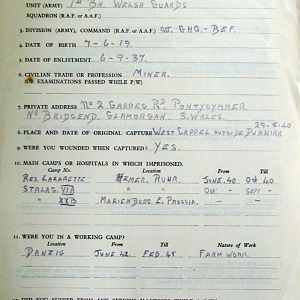 UNIT (ARMY) 1st Bn. WELSH GUARDS
SQUADRON (R.A.F. or A.A.F.)
3. DIVISION (ARMY), COMMAND (R.A.F. or A.A.F.) GHQ - BEF.
4. DATE OF BIRTH 7-6-19.
5. DATE OF ENLISTMENT 6-9-37.
6. CIVILIAN TRADE OR PROFESSION MINER.
OR EXAMINATIONS PASSED WHILE P/W)
7. PRIVATE ADDRESS No 2 GARREG RD PONTYCYMMER
NR BRIDGEND, GLAMORGAN, S. WALES.
29-5-40
8. PLACE AND DATE OF ORIGINAL CAPTURE WEST CAPPEL OUTSIDE DUNKIRK
9. WERE YOU WOUNDED WHEN CAPTURED? YES.
10. MAIN CAMPS OR HOSPITALS IN WHICH IMPRISONED.
Camp No. Location From Till
RES. LAZARETTE HEMER, RUHR. JUNE. 40 Oct 40
STALAG. VIA " Oct - SEPT -
" XXB MARIENBURG E. PRUSSIA.
11. WERE YOU IN A WORKING CAMP?
Location From Till Nature of Work
DANZIG JUNE 42 FEB. 45 FARM WORK